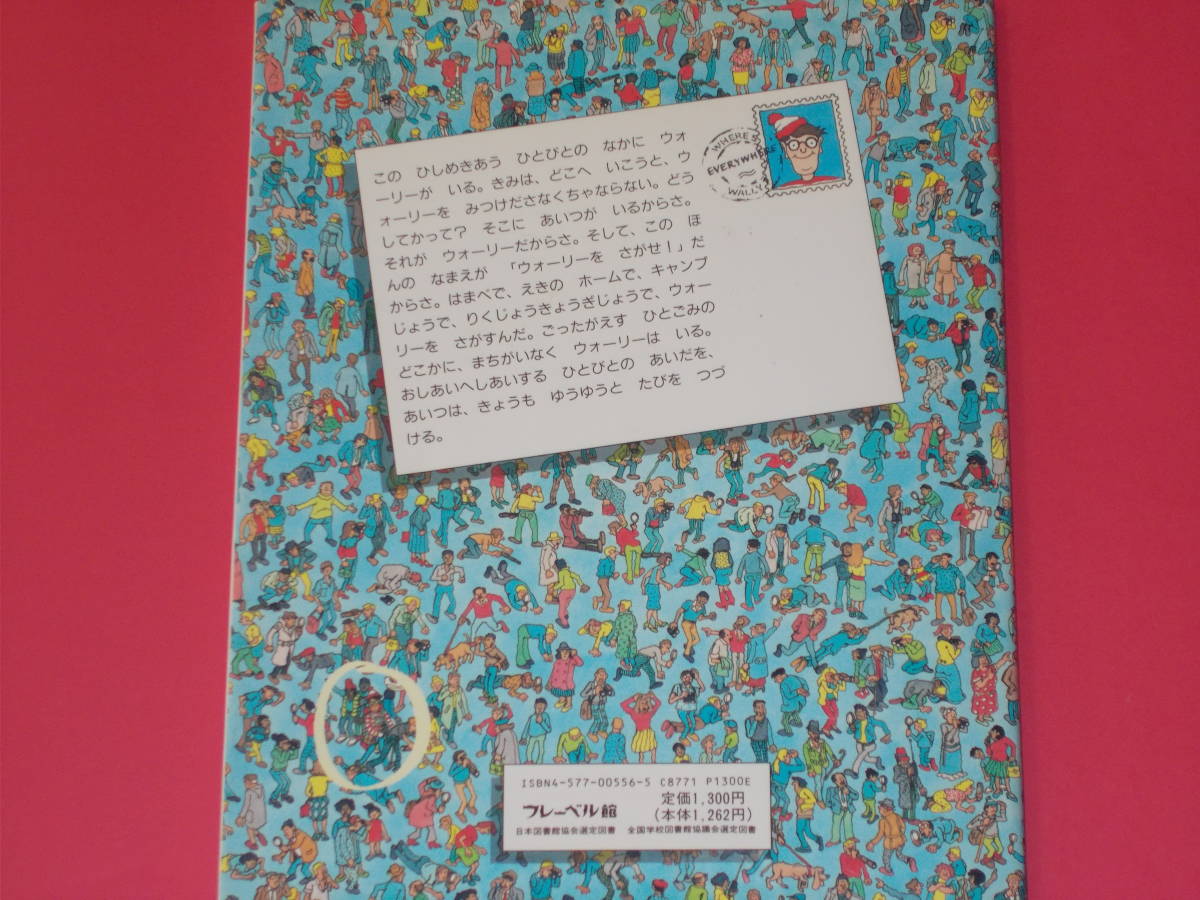 WHERE'S
EVERYWHERE
WALLY
この　ひしめきあう　ひとびとの　なかに　ウォ
ーリーが　いる。きみは、どこへ　いこうと、ウ
ォーリーを　みつけださなくちゃならない。どう
してかって？　そこに　あいつが　いるからさ。
それが　ウォーリーだからさ。そして、この　ほ
んの　なまえが　「ウォーリーを　さがせ！」だ
からさ。はまべで、えきの　ホームで、キャンプ
じょうで、りくじょうきょうぎじょうで、ウォー
リーを　さがすんだ。ごったがえす　ひとごみの
どこかに、まちがいなく　ウォーリーは　いる。
おしあいへしあいする　ひとびとの　あいだを、
あいつは、きょうも　ゆうゆうと　たびを　つづ
ける。
ISBN4-577-00556-5　C8771　P1300E
フレーベル館
定価1,300円
（本体1,262円）
日本図書館協会選定図書　全国学校図書館協議会選定図書